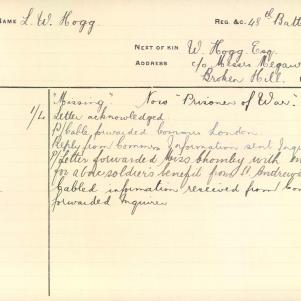 NAME L. W. Hogg REG. &C. 48th Batt
NEXT OF KIN W. Hogg Esq.
ADDRESS c/o Messrs Megaw
Broken Hill.
"Missing" Now "Prisoner of War"
1/L Letter acknowledged.
Cable, forwarded Commrs London.
Reply from Commrs Information sent
P/Letter forwarded Miss Chomley with
for above soldier's benefit from St Andrews
Cabled information received from
forwarded Inquirer